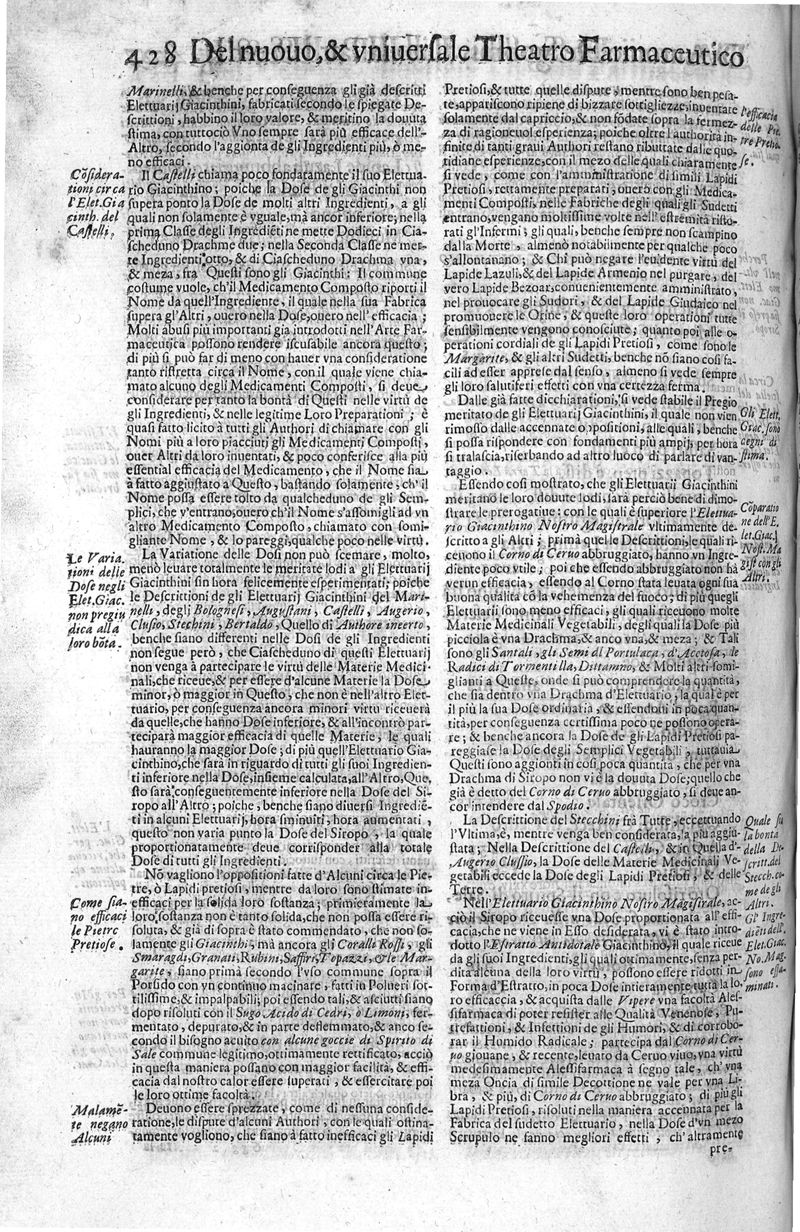 428 Del nuouo, & vniuersale Theatro Farmaceutico
Marinelli, & benche per conseguenza gli già descritti
Elettuarij Giacinthini, fabricati secondo le spiegate De-
scrittioni, habbino il loro valore, & meritino la douuta
stima, con tuttociò Vno sempre sarà più efficace dell'-
Altro, secondo l'aggionta de gli Ingredienti più, ò me-
no efficaci.
Cõsidera-
tioni circa
l'Elet. Gia
cinth. del
Castelli,
Il Castelli chiama poco fondatamente il suo Elettua-
rio Giacinthino; poiche la Dose de gli Giacinthi non
supera ponto la Dose de molti altri Ingredienti, a gli
quali non solamente è vguale, mà ancor inferiore; nella
prima Classe degli Ingrediẽti ne mette Dodieci in Cia-
scheduno Drachme due; nella Seconda Classe ne met-
te Ingredienti otto, & di Ciascheduno Drachma vna,
& meza, frà Questi sono gli Giacinthi: Il commune
costume vuole, ch'il Medicamento Composto riporti il
Nome da quell'Ingrediente, il quale nella sua Fabrica
supera gl'Altri, ouero nella Dose, ouero nell'efficacia;
Molti abusi più importanti gia introdotti nell'Arte Far-
maceutica possono rendere iscusabile ancora questo;
di più si può far di meno con hauer vna consideratione
tanto ristretta circa il Nome, con il quale viene chia-
mato alcuno degli Medicamenti Composti, si deue
considerare per tanto la bontà di Questi nelle virtù de
gli Ingredienti, & nelle legitime Loro Preparationi; è
quasi fatto licito à tutti gli Authori di chiamare con gli
Nomi più a loro piacciuti gli Medicamenti Composti,
ouer Altri da loro inuentati, & poco conferisce alla più
essential efficacia del Medicamento, che il Nome sia
à fatto aggiustato a Questo, bastando solamente; ch'il
Nome possa essere tolto da qualcheduno de gli Sem-
plici, che v'entrano, ouero ch'il Nome s'assomigli ad vn
altro Medicamento Composto, chiamato con somi-
gliante Nome, & lo pareggi, qualche poco nelle virtù.
Le Varia-
tioni delle
Dose negli
Elet. Giac.
non pregiu
dica alla
loro bõta.
La Variatione delle Dosi non può scemare, molto,
menò leuare totalmente le meritate lodi a gli Elettuarij
Giacinthini sin hora felicemente esperimentati; poiche
le Descrittioni de gli Elettuarij Giacinthini del Mari-
nelli, degli Bolognesi, Augustani, Castelli, Augerio,
Clusio, Stechini, Bertaldo, Quello di Authore incerto,
benche siano differenti nelle Dosi de gli Ingredienti
non segue però, che Ciascheduno di questi Elettuarij
non venga à partecipare le virtù delle Materie Medici-
nali, che riceue, & per essere d'alcune Materie la Dose
minor, ò maggior in Questo, che non è nell'altro Elet-
tuario, per conseguenza ancora minori virtù riceuerà
da quelle, che hanno Dose inferiore, & all'incontrò par-
teciparà maggior efficacia di quelle Materie, le quali
hauranno la maggior Dose; di più quell'Elettuario Gia-
cinthino, che sarà in riguardo di tutti gli suoi Ingredien-
ti inferiore nella Dose, insieme calculata, all'Altro, Que,
sto sarà, conseguentemente inferiore nella Dose del Si-
ropo all'Altro; poiche, benche siano diuersi Ingrediẽ-
ti in alcuni Elettuarij, hora sminuiti, hora aumentati,
questo non varia punto la Dose del Siropo, la quale
proportionatamente deue corrisponder alla totale
Dose di tutti gli Ingredienti.
Come sia-
no efficaci
le Pietre
Pretiose.
Nõ vagliono l'oppositioni fatte d'Alcuni circa le Pie-
tre, ò Lapidi pretiosi, mentre da loro sono stimate in-
efficaci per la solida loro sostanza; primieramente la
loro sostanza non è tanto solida, che non possa essere ri-
soluta, & già di sopra è stato commendato, che non so-
lamente gli Giacinthi, mà ancora gli Coralli Rossi, gli
Smaragdi, Granati, Rubini, Saffiri, Topazzi, & le Mar-
garite, siano prima secondo l'vso commune sopra il
Porfido con vn continuo macinare, fatti in Polueri sot-
tilissime, & impalpabili; poi essendo tali, & asciutti siano
dopo risoluti con il Sugo Acido di Cedri, ò Limoni, fer-
mentato, depurato, & in parte deflemmato, & anco se-
condo il bisogno acuito con alcune goccie di Spirito di
Sale commune legitimo, ottimamente rettificato, acciò
in questa maniera possano con maggior facilità, & effi-
cacia dal nostro calor essere superati, & essercitare poi
le loro ottime facoltà.
Malamẽ-
te negano
Alcuni
Deuono essere sprezzate, come di nessuna conside-
ratione, le dispute d'alcuni Authori, con le quali ostina-
tamente vogliono, che siano à fatto inefficaci gli Lapidi
Pretiosi, & tutte quelle dispute, mentre sono ben pesa-
te, appariscono ripiene di bizzare sottigliezze, inuentate
solamente dal capriccio, & non fõdate sopra la fermez-
za di ragione, uol esperienza; poiche oltre l'authorità in-
finite di tanti graui Authori restano ributtate dalle quo-
tidiane esperienze, con il mezo delle quali chiaramente
si vede, come con l'amministratione di simili Lapidi
Pretiosi, rettamente preparati, ouerò con gli Medica-
menti Composti, nelle Fabriche degli quali gli Sudetti
entrano, vengano moltissime volte nell'estremità risto-
rati gl'Infermi; gli quali, benche sempre non scampino
dalla Morte, almenò notabilmente per qualche poco
s'allontanano; & Chi può negare l'euidente virtù del
Lapide Lazuli, & del Lapide Armenio nel purgare, del
vero Lapide Bezoar, conuenientemente amministrato,
nel prouocare gli Sudori, & del Lapide Giudaico nel
promouere le Orine, & queste loro operationi tutte
sensibilmente vengono conosciute; quanto poi alle o-
perationi cordiali de gli Lapidi Pretiosi, come sono le
Margarite, & gli altri Sudetti, benche nõ siano cosi fa-
cili ad esser apprese dal senso, almeno si vede sempre
gli loro salutiferi effetti con vna certezza ferma.
l'efficacia
delle Pie
tre Pretio
se.
Dalle già fatte dicchiarationi, si vede stabile il Pregio
meritato de gli Elettuarij Giacinthini, il quale non vien
rimosso dalle accennate oppositioni, alle quali, benche
si possa rispondere con fondamenti più ampij, per hora
si tralascia, riserbando ad altro luoco di parlare di van-
taggio.
Gli Elett.
Giac. sono
degni di
stima.
Essendo cosi mostrato, che gli Elettuarij Giacinthini
meritano le loro douute lodi, sarà perciò bene di dimo-
strare le prerogatiue; con le quali è superiore l'Elettua-
rio Giacinthino Nostro Magistrale vltimamente de-
scritto a gli Altri; prima quelle Descrittioni, le quali ri-
ceuono il Corno di Ceruo abbruggiato, hanno vn Ingre-
diente poco vtile; poi che essendo abbruggiato non hà
verun efficacia, essendo al Corno stata leuata ogni sua
buona qualità cõ la vehemenza del fuoco; di più quegli
Elettuarij sono meno efficaci, gli quali riceuono molte
Materie Medicinali Vegetabili, degli quali la Dose più
picciola è vna Drachma, & anco vna, & meza; & Tali
sono gli Santali, gli Semi di Portulaca, d'Acetosa, le
Radici di Tormentilla, Dittamno, & Molti altri somi-
glianti a Queste, onde si può comprendere la quantità,
che sia dentro vna Drachma d'Elettuario, la qual è per
il più la sua Dose ordinaria, & essendoui in poca quan-
tità, per conseguenza certissima poco ne possono opera-
re; & benche ancora la Dose de gli Lapidi Pretiosi pa-
reggiasse la Dose degli Semplici Vegetabili, tuttauia
Questi sono aggionti in cosi poca quantità, che per vna
Drachma di Siropo non vi è la douuta Dose; quello che
già è detto del Corno di Ceruo abbruggiato, si deue an-
cor intendere dal Spodio.
Cõparatio
ne dell'E.
let. Giac.
Nost. Ma
gist con gli
Altri.
La Descrittione del Stecchini frà Tutte, eccettuando
l'Vltima, è, mentre venga ben considerata, la più aggiu-
stata; Nella Descrittione del Castelli, & in Quella d'-
Augerio Clussio, la Dose delle Materie Medicinali Ve-
getabili eccede la Dose degli Lapidi Pretiosi, & delle
Terre.
Quale sia
la bontà
della De-
scritt. del
Stecch. co-
me de gli
Altri.
Nell'Elettuario Giacinthino Nostro Magistrale, ac-
ciò il Siropo riceuesse vna Dose proportionata all'effi-
cacia, che ne viene in Esso desiderata, vi è stato intro-
dotto l'Estratto Antidotale Giacinthino, il quale riceue
da gli suoi Ingredienti, gli quali ottimamente, senza per-
dita alcuna della loro virtù, possono essere ridotti in
Forma d'Estratto, in poca Dose intieramente tutta la lo-
ro efficaccia, & acquista dalle Vipere vna facoltà Ales-
sifarmaca di poter resister alle Qualità Venenose, Pu-
trefattioni, & Infettioni de gli Humori, & di corrobo-
rar il Humido Radicale; partecipa dal Corno di Cer-
uo giouane, & recente, leuato da Ceruo viuo, vna virtù
medesimamente Alessifarmaca à segno tale, ch'vna
meza Oncia di simile Decottione ne vale per vna Li-
bra, & più, di Corno di Ceruo abbruggiato; di più gli
Lapidi Pretiosi, risoluti nella maniera accennata per la
Fabrica del sudetto Elettuario, nella Dose d'vn mezo
Scrupulo ne fanno megliori effetti, ch'altramente
Gl' Ingre-
diẽti dell.
Elet. Giac.
No. Mag.
sono effi-
minati.
pre-